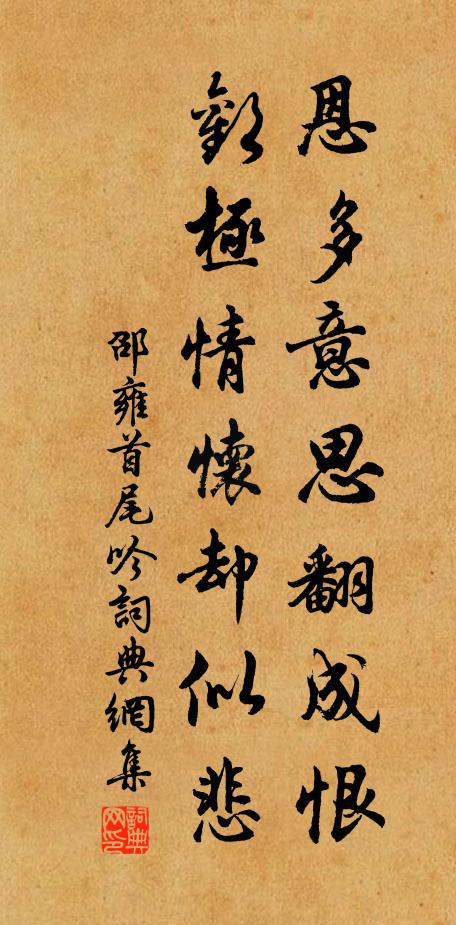 恩多意思翻成恨
歡極情懷却似悲
邵雍首尾吟詞典網集
詞典网印